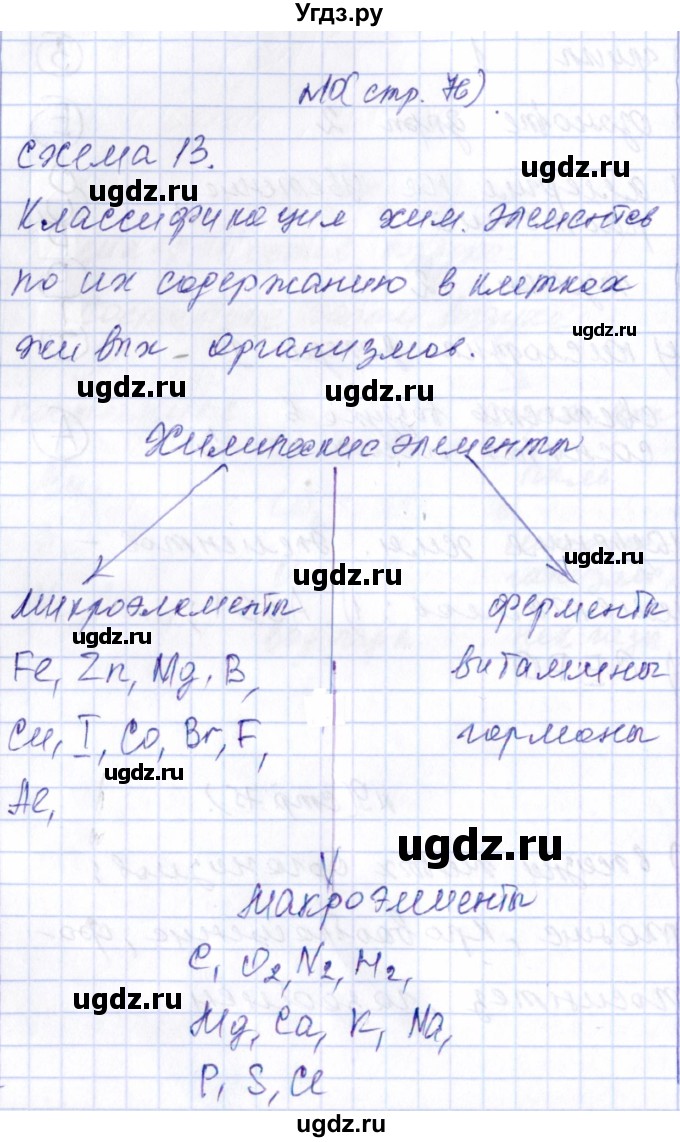 Угдз.ру
№10 (стр. 76)
схема 13.
Классификация хим. элементов
по их содержанию в клетках
живых организмов.
Химические элементы
Микроэлементы
Fe, Zn, Mg, B,
Cu, I, Co, Br, F,
Al,
ферменты
витамины
гормоны
Макроэлементы
C, O2, N2, H2,
Mg, Ca, K, Na,
P, S, Cl
ugdz.ru
ugdz.ru
ugdz.ru
ugdz.ru
ugdz.ru
ugdz.ru
ugdz.ru
ugdz.ru
ugdz.ru
ugdz.ru
ugdz.ru
ugdz.ru
ugdz.ru
ugdz.ru